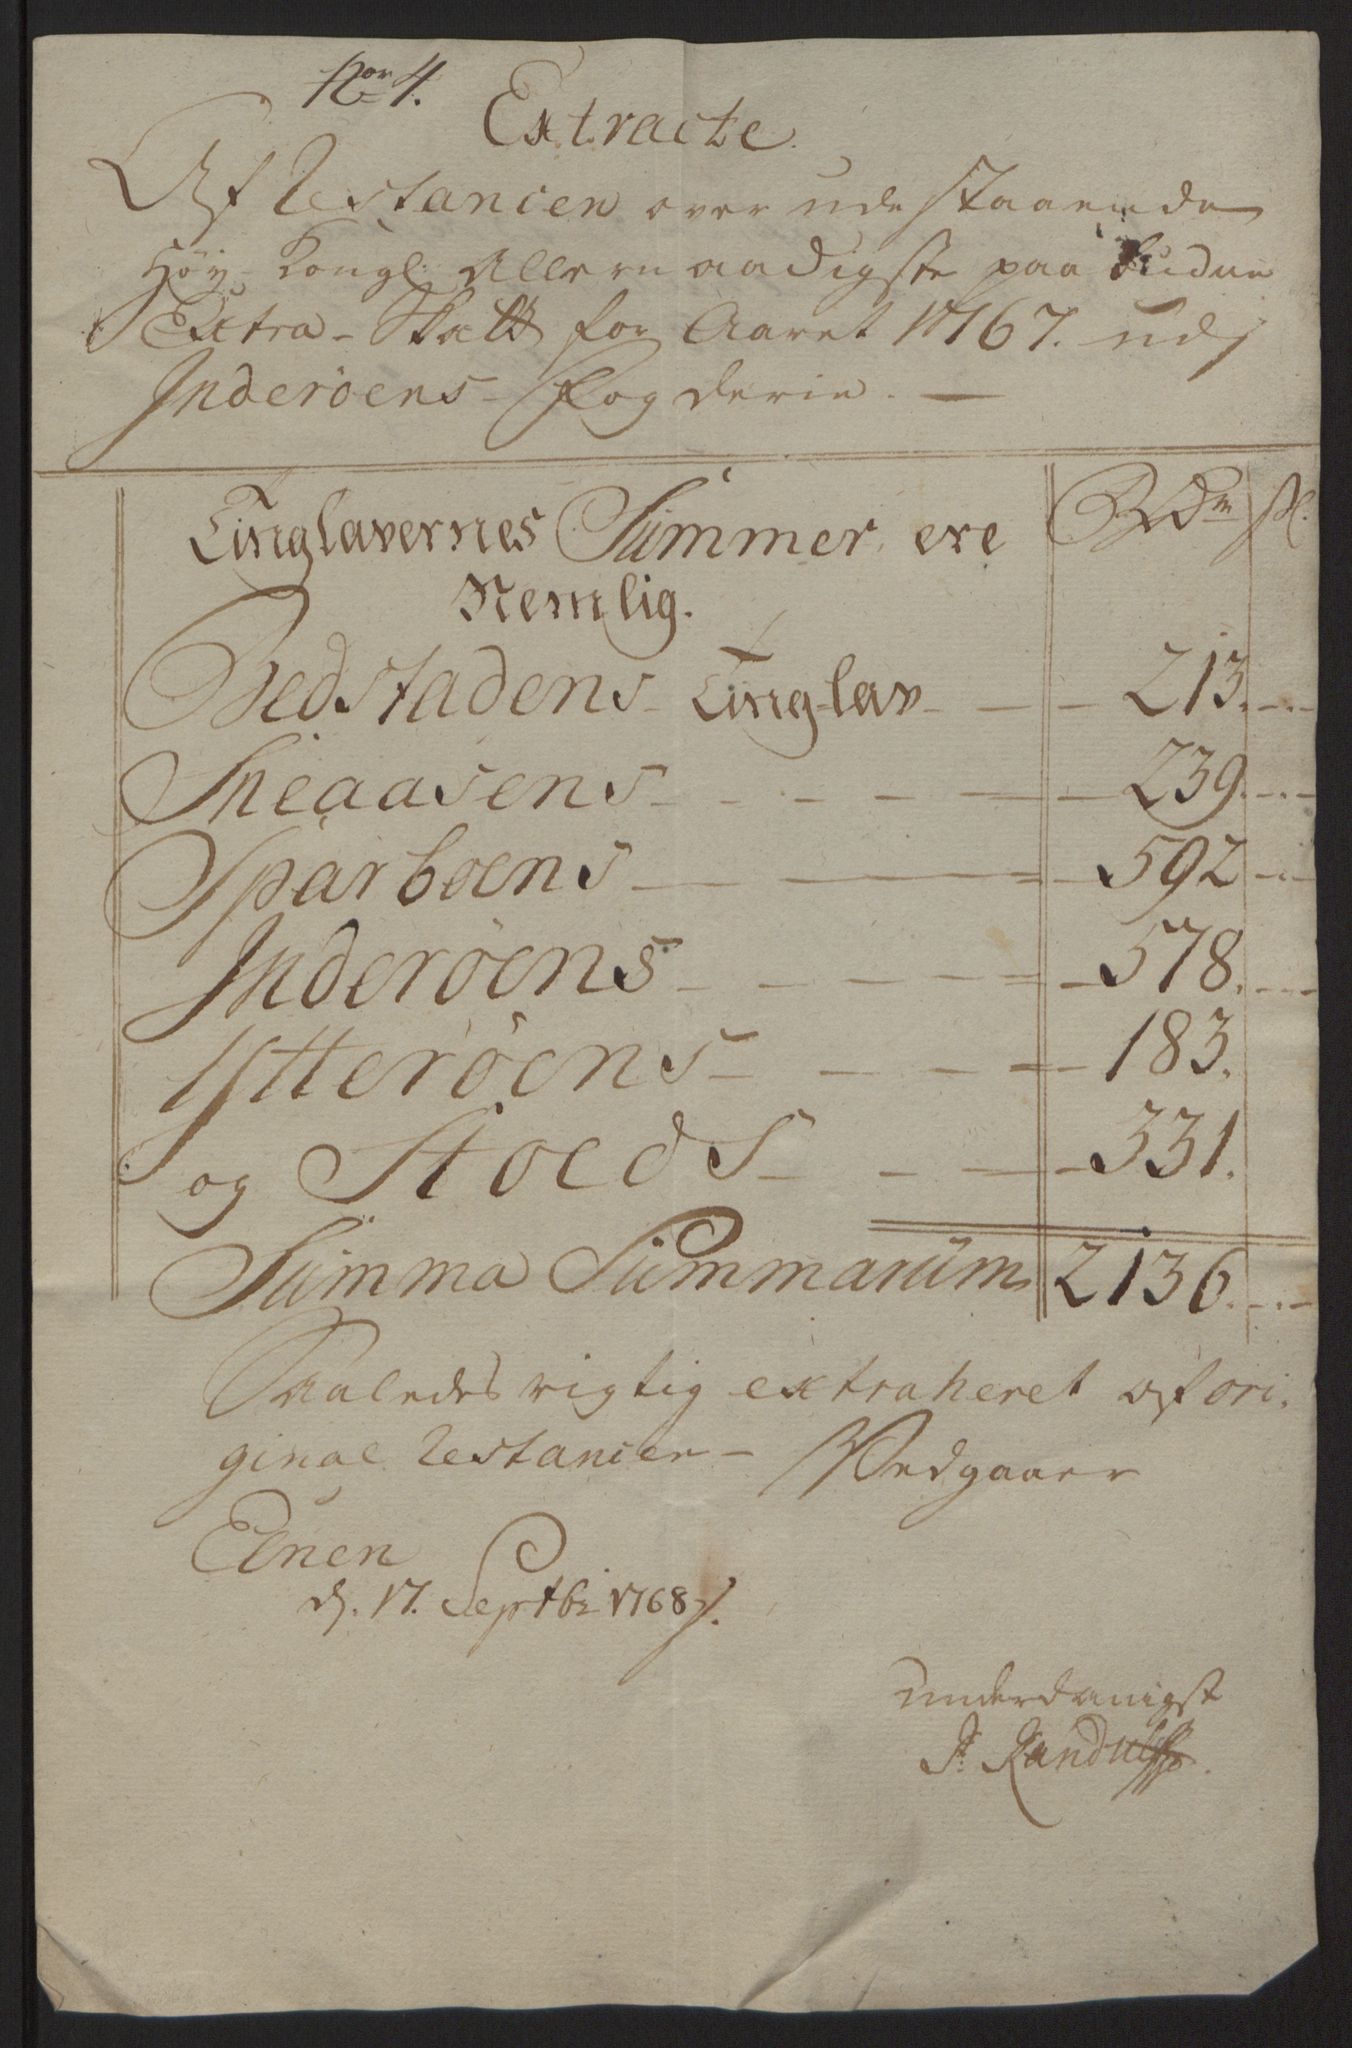 Nor 4.
Extracte
Af Restancen over udestaaende
Høy-Kongl: Allernaadigste paabudne
Extra-Skatt for Aaret 1767. udj
Inderøens Fogderie. —
Tinglavernes Summer ere Rdr s.
Nemlig.
Bedstadens Tinglav - - - 213. - -
Sneaasens - - - - 239. - -
Sparboens - - - 592 - -
Inderøens - - - - 578. - -
Ytterøens - - - - 183.
og Stoeds - - - 331.
Summa Summarum 2136. - -
Saaledes rigtig extraheret af ori-
ginal Restancen - Vedgaaer
Elnen
d. 17. Septbr 1768
underdanigst
J: Randulff